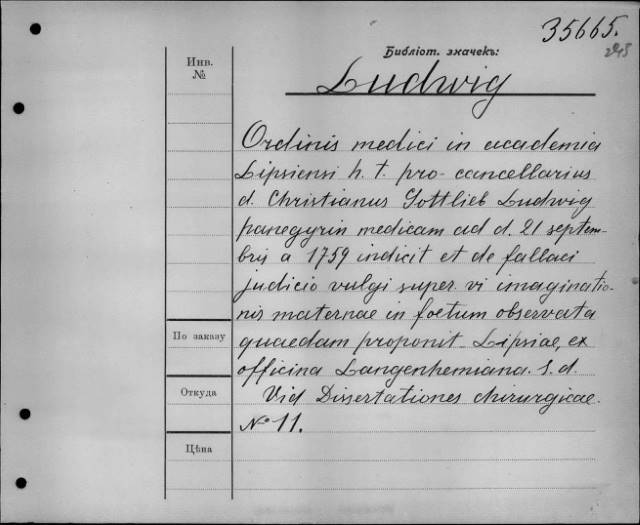 35665.
245
Библіот. значекъ:
Ludwig
Инв.
№
Ordinis medici in academia
Lipsiensi h. t. pro-cancellarius
d. Christianus Gottlieb Ludwig
panegyrin medicam ad d. 21 septem-
bris a 1759 indicit et de fallaci
judicio vulgi super vi imaginatio-
nis maternae in foetum observata
quaedam proponit Lipsiae, ex
officina Langenhemiana. s. d.
Vid Dissertationes chirurgicae.
№ 11.
По заказу
Откуда
Цѣна